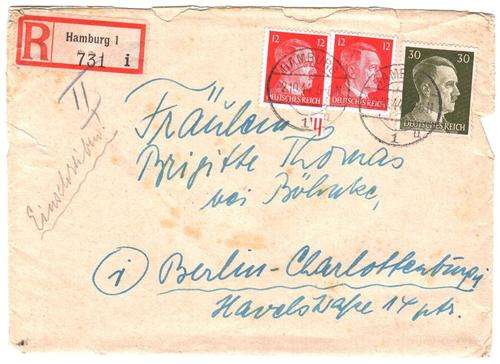 R Hamburg 1
731 i
12 12 12 12 30 30
DEUTSCHES REICH DEUTSCHES REICH DEUTSCHES REICH
HAMBURG
1
1
II
Einschreiben
Fräulein
Brigitte Thomas
bei Böhnke,
i Berlin-Charlottenburg
Havelstraße 14 ptr.